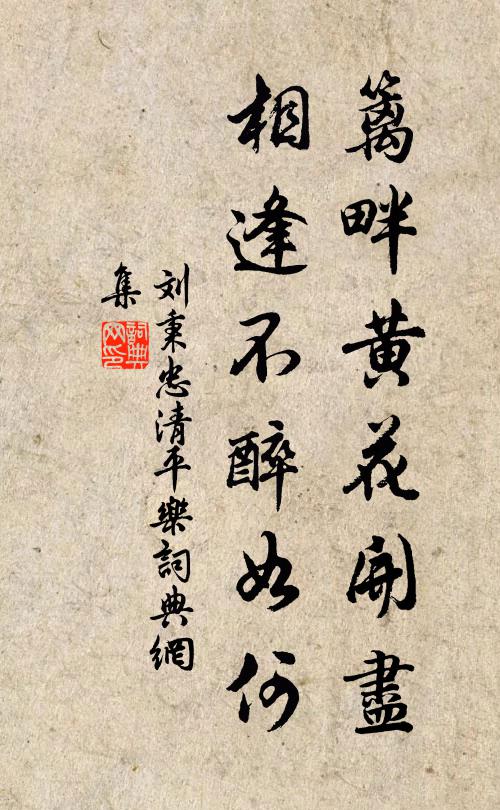 籬畔黄花開盡
相逢不醉如何
刘秉忠清平樂詞典網
集
詞典
网印